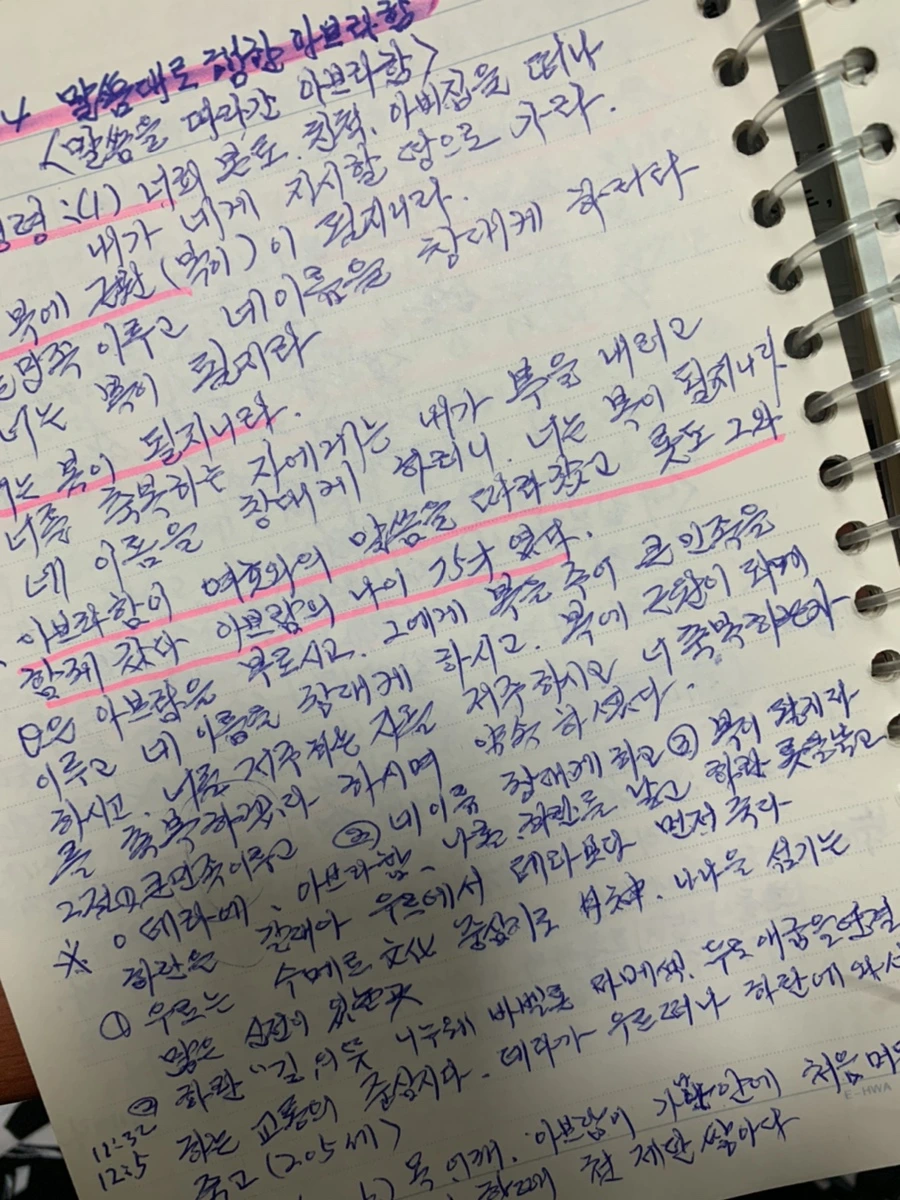 4 말씀대로 행한 아브라함
<말씀을 따라간 아브라함>
명령 : (1) 너희 본토. 친척. 아비집을 떠나
내가 네게 지시할 땅으로 가라.
복에 근원(복이)이 될지니라.
민족 이루고 네이름을 창대케 하리라
너는 복이 될지라
너는 복이 될지니라.
너를 축복하는 자에게는 내가 복을 내리고
네 이름을 창대케 하리니. 너는 복이 될지니라.
아브라함이 여호와의 말씀을 따라갔고 롯도 그와
함께 갔다 아브람의 나이 75세 였다.
은 아브람을 부르시고. 그에게 복을 주어 큰 민족을
이루고 네 이름을 창대케 하시고. 복에 근원이 되게
하시고. 너를 저주하는 자를 저주하시고 너 축복하는자
를 축복하겠다 하시며 약속하셨다.
큰민족이루고 ② 네이름 창대케 하고 ③ 복이 될지라
※ ○ 데라에. 아브라함. 나홀. 하란를 낳고 하란 롯을낳고
하란은 갈대아 우르에서 데라보다 먼저 죽다
① 우르는 수메르 文化 중심지로 月神. 나나을 섬기는
많은 신전이 있는곳
② 하란 "길"의 뜻 니느웨 바벨론 다메섹. 두로 애굽을연결
11:32 하는 교통의 중심지다. 데라가 우르떠나 하란에 와서
12:5 죽고 (205세)
아브람이 가나안에 처음
제단 쌓아다
E-HWA